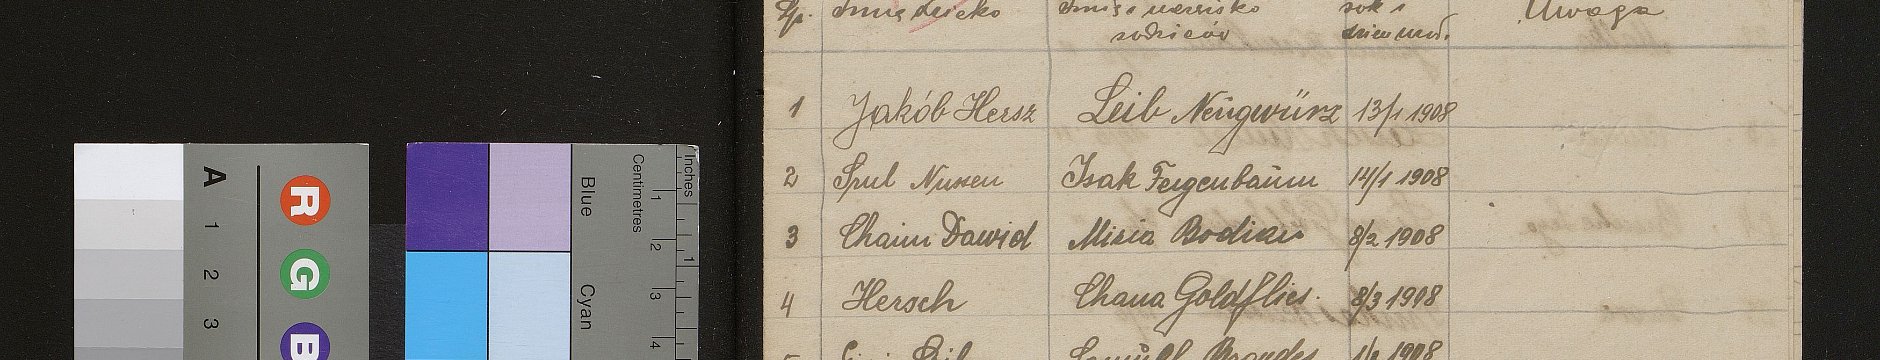 Lp. Imię dziecka Imię i nazwisko rodziców rok i dzień urod. Uwaga
1 Jakób Hersz Leib Neugwürz 13/1 1908
2 Srul Nussen Isak Feigenbaum 14/1 1908
3 Chaim Dawid Misia 8/2 1908
4 Hersch Chana Goldflies 8/3 1908
Samuel Brandes 1908
A 1 2 3
R G B
Blue
Cyan
Centimetres
Inches
1 2 3 4
1